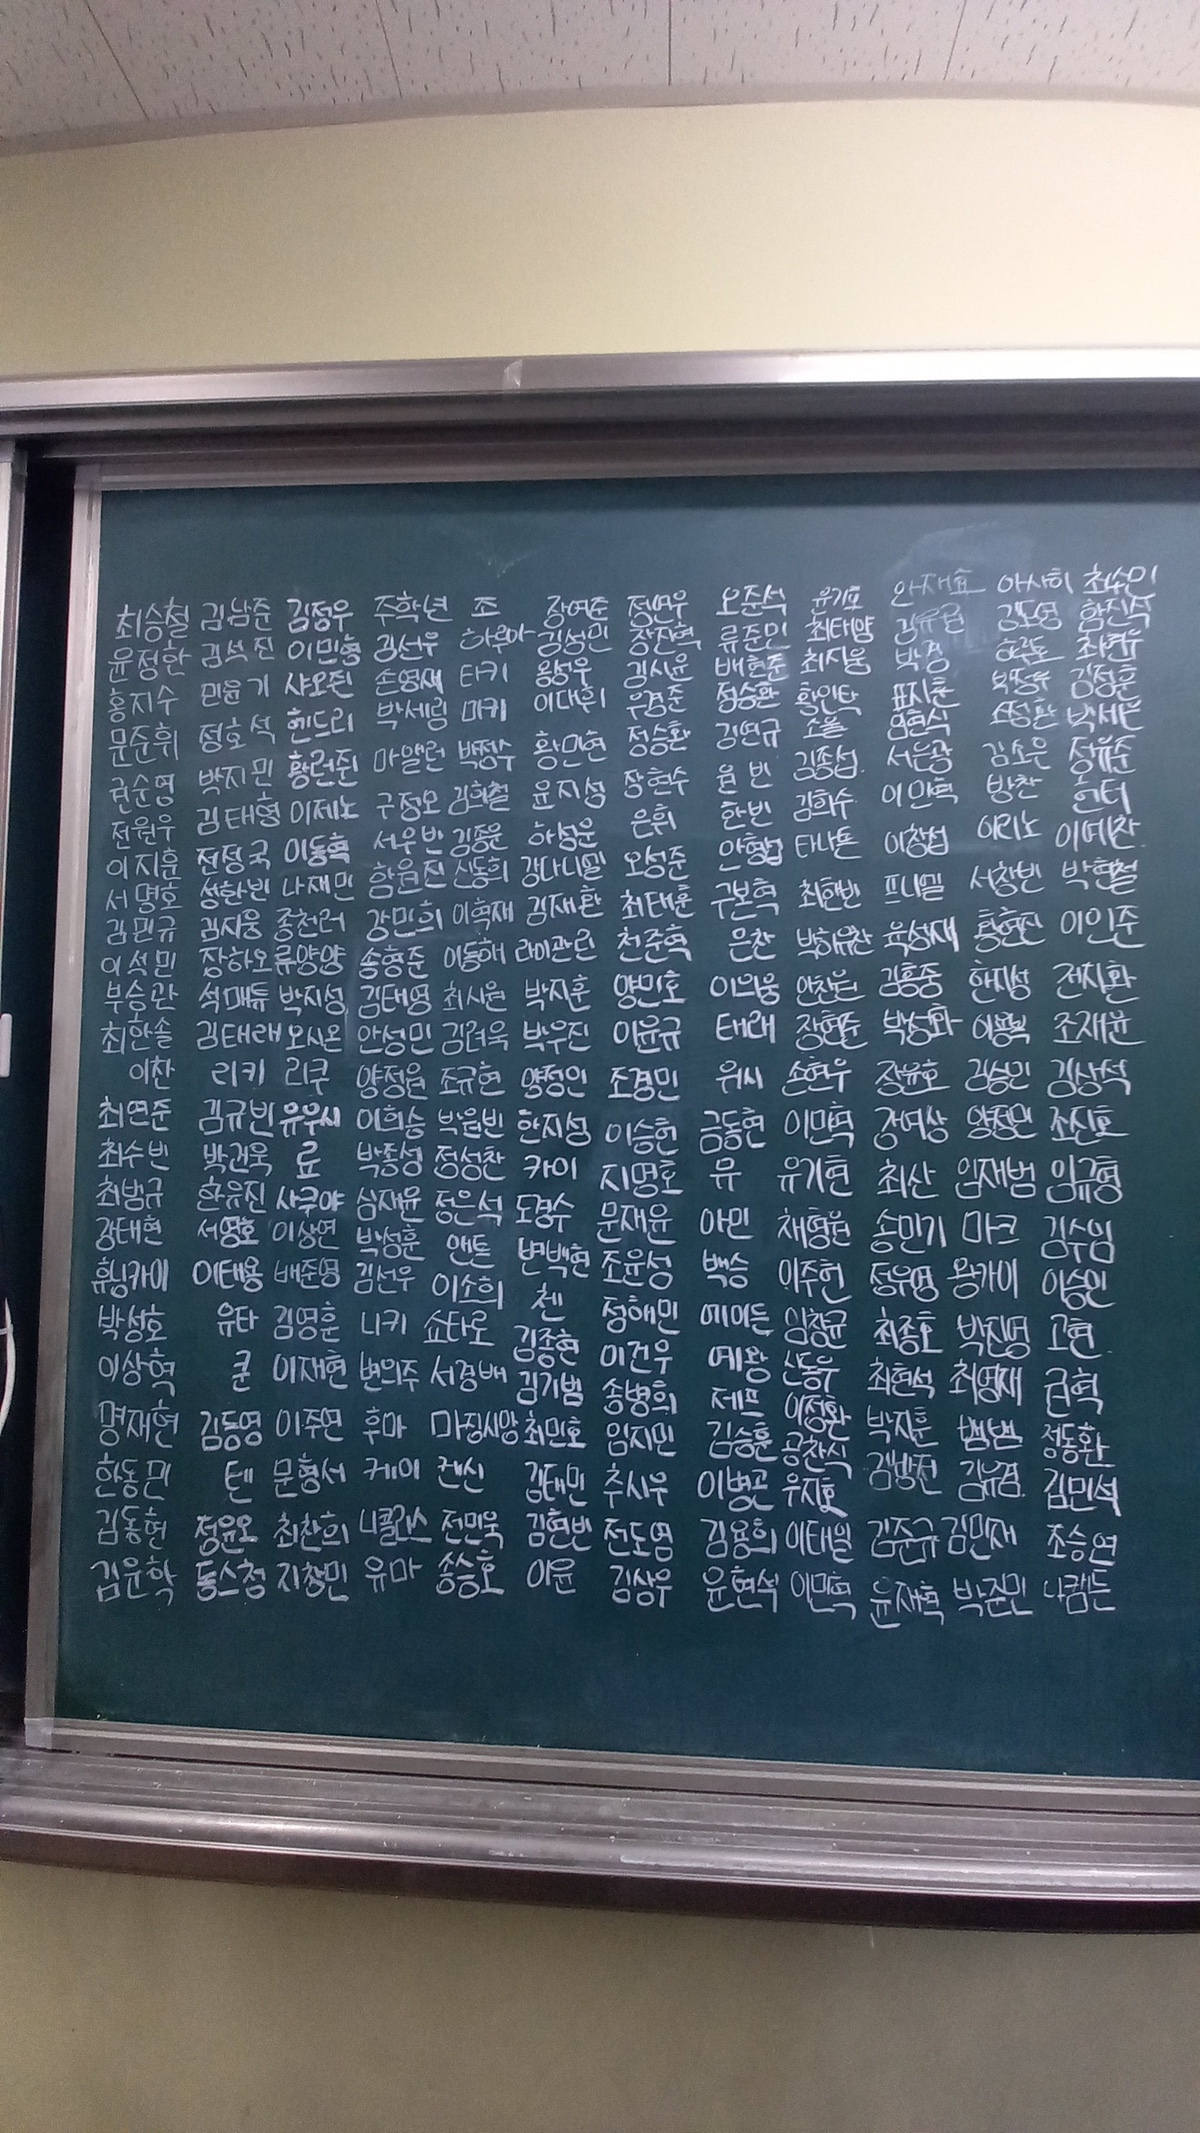 최승철 김남준 김정우 주학년 조 장여준 정연우 오준석 윤기호 안재효 아사히 최수민
윤정한 김석진 이민형 김선우 하루아 김성민 장진혁 류준민 최태양 김유권 김도영 함진식
홍지수 민윤기 샤오쥔 손영재 타키 옹성우 김시윤 배현준 최지웅 박경
문준휘 정호석 헨드리 박세림 마키 이대휘 우경준 정승환 황인탁 표지훈 김정훈
권순영 박지민 황런쥔 마앨런 박정수 황민현 정승환 김연규 소울 임현식 박세은
전원우 김태형 이제노 구정모 김희철 윤지성 장현수 윤빈 김종섭 서은광 김소은 정유준
이지훈 전정국 이동혁 서우빈 김종운 하성운 은휘 한빈 김희수 이민혁 방찬 헌터
서명호 성한빈 나재민 함원진 신동희 강다니엘 오성준 안형섭 타나톤 이창섭 이리노 이예찬
김민규 김지웅 종천러 강민희 이혁재 김재환 최태훈 구본혁 최현빈 프니엘 서창빈 박현철
이석민 장하오 류양양 송형준 이동해 라이관린 천준혁 은찬 박하유찬 육성재 황현진 이인준
부승관 석매튜 박지성 김태영 최시원 박지훈 양민호 이의웅 안찬원 김홍중 한지성 전지환
최한솔 김태래 오시온 안성민 김려욱 박우진 이윤규 태래 장현준 박성화 이용복 조재윤
이찬 리키 리쿠 양정원 조규현 양정인 조경민 위시 손현우 정윤호 김승민 김상석
최연준 김규빈 유우시 이희승 박원빈 한지성 이승헌 금동현 이민혁 강여상 양정인 조진호
최수빈 박건욱 료 박종성 정성찬 카이 지명호 뮤 유기현 최산 임재범 임규형
최범규 한유진 사쿠야 심재윤 정은석 도경수 문재윤 아민 채형원 송민기 마크 김수임
강태현 서영호 이상연 박성훈 앤톤 변백현 조윤성 백승 이주헌 정우영 왕카이 이승민
휴닝카이 이태용 배준영 김선우 이소희 첸 정해민 에이든 임창균 최종호 박진영 고현
박성호 유타 김영훈 니키 쇼타로 김종현 이건우 예왕 신동우 최현석 최영재 금혁
이상혁 쿤 이재현 변의주 서경배 김기범 송병희 제프 이정환 박지훈 뱀뱀 정동환
명재현 김동영 이주연 후마 마징시앙 최민호 임지민 김승훈 공찬식 김방전 김유겸 김민석
한동민 텐 문형서 케이 켄신 김태민 추시우 이병곤 우지호 김준규 김민재 조승연
김동현 정윤오 최찬희 니콜라스 전민욱 김현빈 전도염 김용희 이태일 윤재혁 박준민 나캠든
김운학 동스청 지창민 유마 송승호 이윤 김상우 윤현석 이민혁